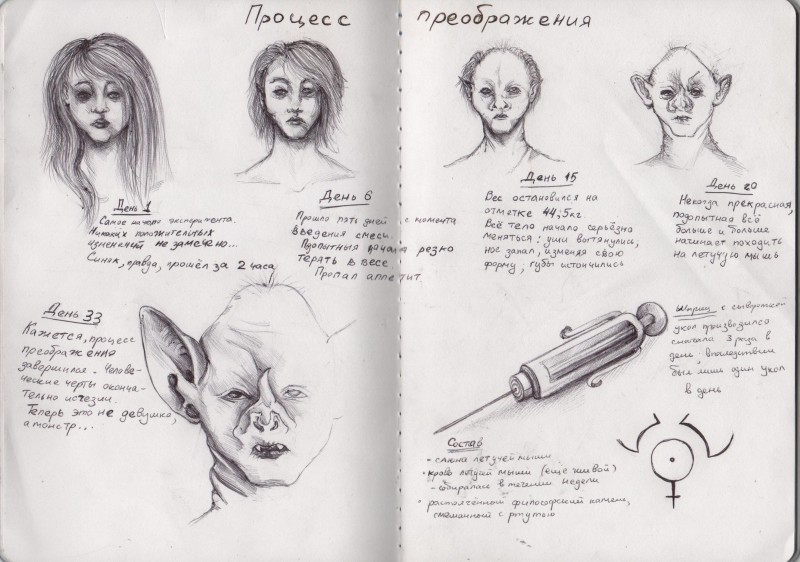 Процесс преображения
День 1
Самое начало эксперимента.
Никаких положительных
изменений не замечено...
Синяк, правда, прошёл за 2 часа
День 6
Прошло пять дней с момента
введения смеси.
Подопытная начала резко
терять в весе.
Пропал аппетит.
День 15
Вес остановился на
отметке 44,5 кг.
Всё тело начало серьёзно
меняться: уши вытянулись,
нос запал, изменяя свою
форму, губы истончились
День 20
Некогда прекрасная,
подопытная всё
больше и больше
начинает походить
на летучую мышь
День 33
Кажется, процесс
преображения
завершился. Челове-
ческие черты оконча-
тельно исчезли.
Теперь это не девушка,
а монстр...
Шприц с сывороткой
укол производился
сначала 3 раза в
день, впоследствии
был лишь один укол
в день
Состав
- слюна летучей мыши
- кровь летучей мыши (ещё живой)
- собиралась в течении недели
- растолчённый философский камень,
смешанный с ртутью